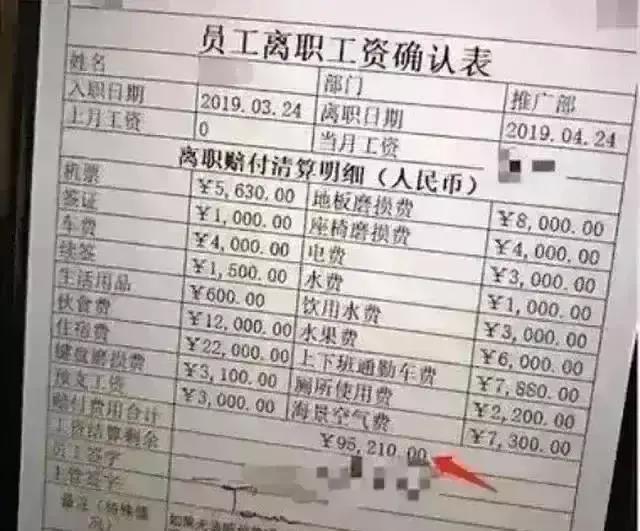 员工离职工资确认表
姓名 部门 推广部
入职日期 2019.03.24 离职日期 2019.04.24
上月工资 0 当月工资
离职赔付清算明细（人民币）
机票 ¥5,630.00 地板磨损费 ¥8,000.00
签证 ¥1,000.00 座椅磨损费 ¥4,000.00
车费 ¥4,000.00 电费 ¥3,000.00
续签 ¥1,500.00 水费 ¥1,000.00
生活用品 ¥600.00 饮用水费 ¥3,000.00
伙食费 ¥12,000.00 水果费 ¥6,000.00
住宿费 ¥22,000.00 上下班通勤车费 ¥7,880.00
键盘磨损费 ¥3,100.00 厕所使用费 ¥2,200.00
预支工资 ¥3,000.00 海景空气费 ¥7,300.00
赔付费用合计 ¥95,210.00
工资结算剩余
员工签字
主管签字
备注（特殊情况）